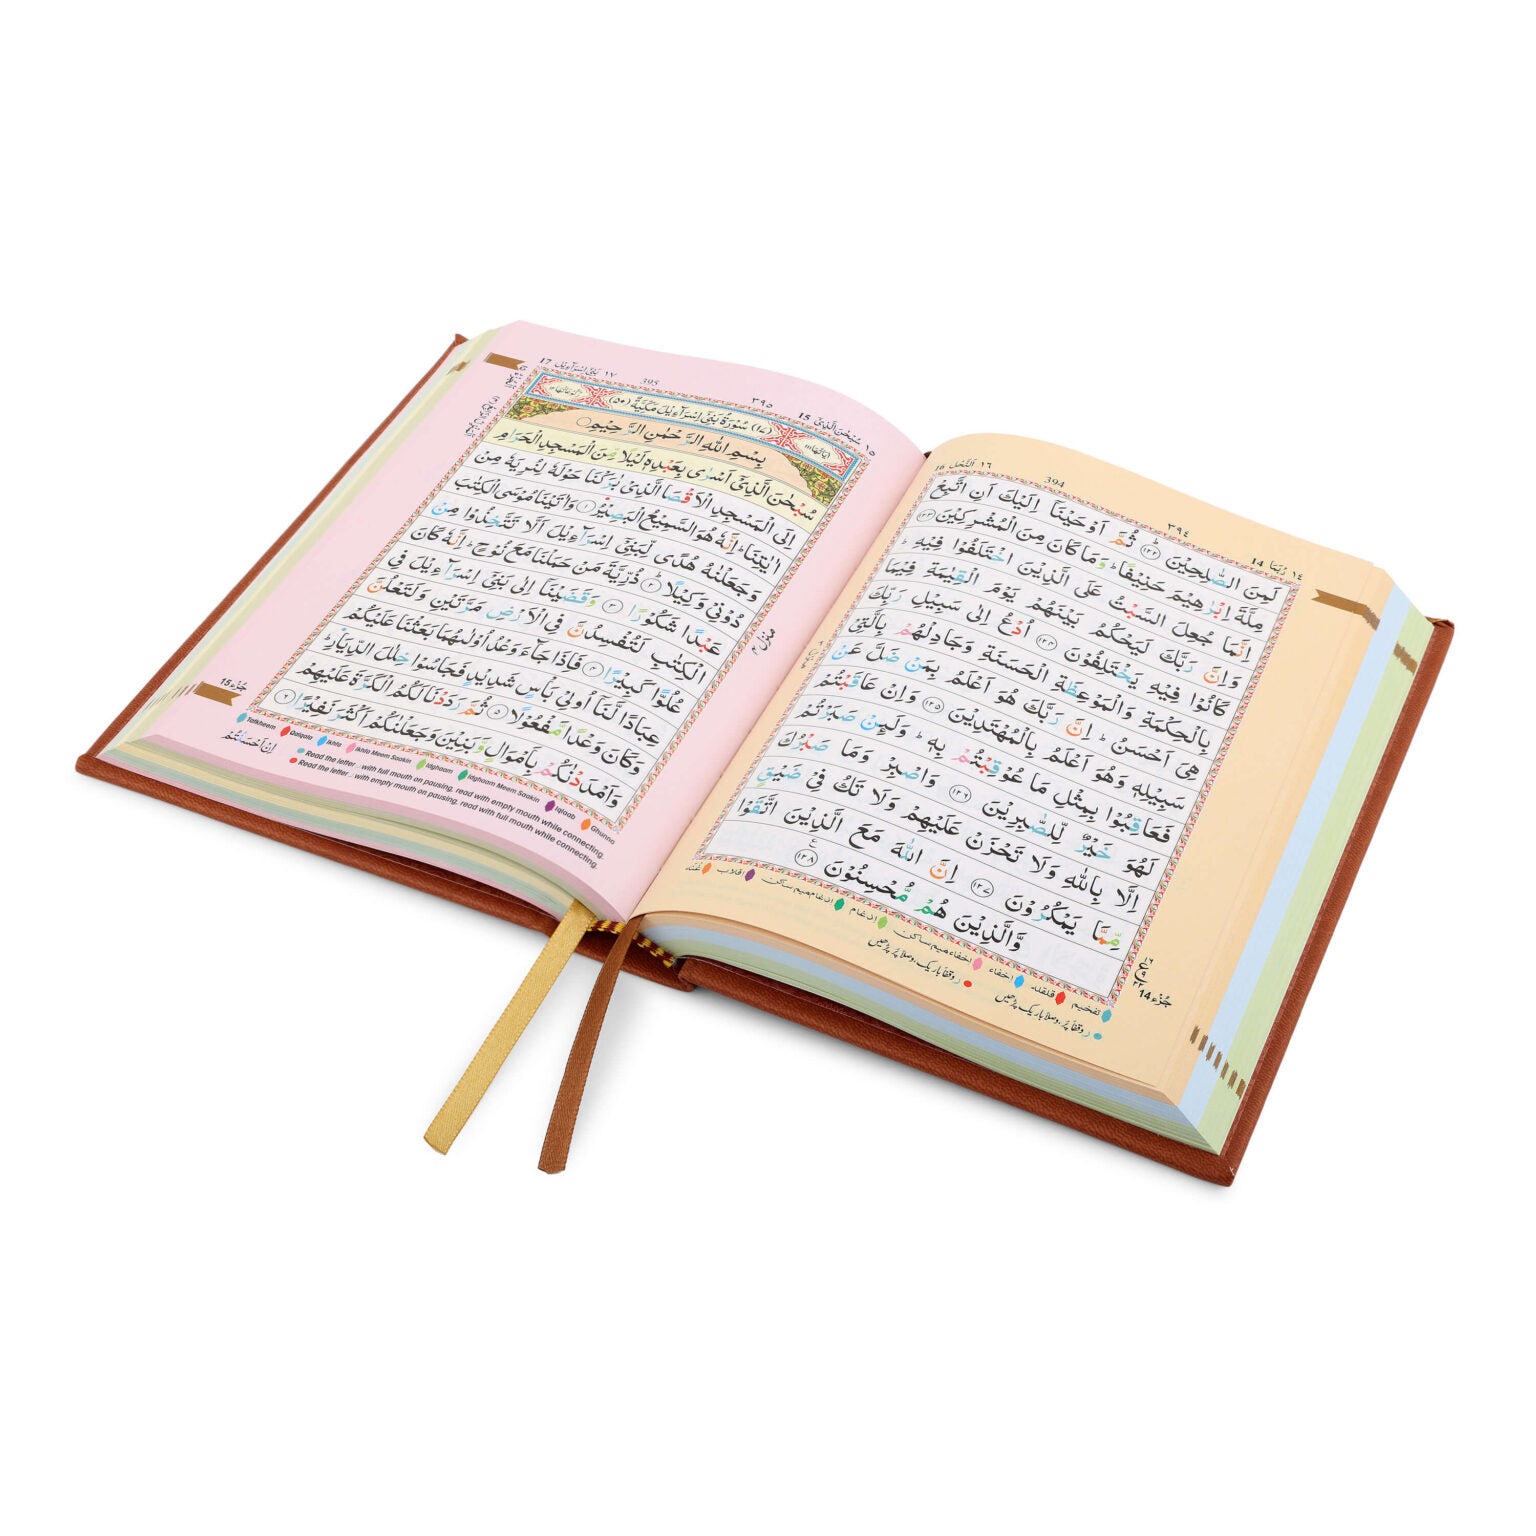 ١٤ رُبَمَا 14 ٣٩٤ 394 ١٦ اَلنَّحْل 16
لَمِنَ الصّٰلِحِيْنَ ؕ ﴿١٢٢﴾ ثُمَّ اَوْحَيْنَاۤ اِلَيْكَ اَنِ اتَّبِعْ
مِلَّةَ اِبْرٰهِيْمَ حَنِيْفًا ؕ وَمَا كَانَ مِنَ الْمُشْرِكِيْنَ ﴿١٢٣﴾
اِنَّمَا جُعِلَ السَّبْتُ عَلَى الَّذِيْنَ اخْتَلَفُوْا فِيْهِ ؕ
وَاِنَّ رَبَّكَ لَيَحْكُمُ بَيْنَهُمْ يَوْمَ الْقِيٰمَةِ فِيْمَا
كَانُوْا فِيْهِ يَخْتَلِفُوْنَ ﴿١٢٤﴾ اُدْعُ اِلٰى سَبِيْلِ رَبِّكَ
بِالْحِكْمَةِ وَالْمَوْعِظَةِ الْحَسَنَةِ وَجَادِلْهُمْ بِالَّتِيْ
هِيَ اَحْسَنُ ؕ اِنَّ رَبَّكَ هُوَ اَعْلَمُ بِمَنْ ضَلَّ عَنْ
سَبِيْلِهٖ وَهُوَ اَعْلَمُ بِالْمُهْتَدِيْنَ ﴿١٢٥﴾ وَاِنْ عَاقَبْتُمْ
فَعَاقِبُوْا بِمِثْلِ مَا عُوْقِبْتُمْ بِهٖ ؕ وَلَئِنْ صَبَرْتُمْ
لَهُوَ خَيْرٌ لِّلصّٰبِرِيْنَ ﴿١٢٦﴾ وَاصْبِرْ وَمَا صَبْرُكَ
اِلَّا بِاللّٰهِ وَلَا تَحْزَنْ عَلَيْهِمْ وَلَا تَكُ فِيْ ضَيْقٍ
مِّمَّا يَمْكُرُوْنَ ﴿١٢٧﴾ اِنَّ اللّٰهَ مَعَ الَّذِيْنَ اتَّقَوْا
وَّالَّذِيْنَ هُمْ مُّحْسِنُوْنَ ﴿١٢٨﴾
جُزْء 14
تفخیم قلقلہ اخفاء اخفاء میم ساکن ادغام ادغام میم ساکن اقلاب غُنّہ
١٥ سُبْحٰنَ الَّذِيْٓ 15 ٣٩٥ 395 ١٧ بَنِيْٓ اِسْرَآءِيْل 17
(١٧) سُوْرَةُ بَنِيْٓ اِسْرَآءِيْلَ مَكِّيَّةٌ (٥٠)
بِسْمِ اللّٰهِ الرَّحْمٰنِ الرَّحِيْمِ
سُبْحٰنَ الَّذِيْٓ اَسْرٰى بِعَبْدِهٖ لَيْلًا مِّنَ الْمَسْجِدِ الْحَرَامِ
اِلَى الْمَسْجِدِ الْاَقْصَا الَّذِيْ بٰرَكْنَا حَوْلَهٗ لِنُرِيَهٗ مِنْ
اٰيٰتِنَا ؕ اِنَّهٗ هُوَ السَّمِيْعُ الْبَصِيْرُ ﴿١﴾ وَاٰتَيْنَا مُوْسَى الْكِتٰبَ
وَجَعَلْنٰهُ هُدًى لِّبَنِيْٓ اِسْرَآءِيْلَ اَلَّا تَتَّخِذُوْا مِنْ
دُوْنِيْ وَكِيْلًا ؕ ﴿٢﴾ ذُرِّيَّةَ مَنْ حَمَلْنَا مَعَ نُوْحٍ ؕ اِنَّهٗ كَانَ
عَبْدًا شَكُوْرًا ﴿٣﴾ وَقَضَيْنَاۤ اِلٰى بَنِيْٓ اِسْرَآءِيْلَ فِي
الْكِتٰبِ لَتُفْسِدُنَّ فِي الْاَرْضِ مَرَّتَيْنِ وَلَتَعْلُنَّ
عُلُوًّا كَبِيْرًا ﴿٤﴾ فَاِذَا جَآءَ وَعْدُ اُوْلٰىهُمَا بَعَثْنَا عَلَيْكُمْ
عِبَادًا لَّنَاۤ اُولِيْ بَاْسٍ شَدِيْدٍ فَجَاسُوْا خِلٰلَ الدِّيَارِ ؕ
وَكَانَ وَعْدًا مَّفْعُوْلًا ﴿٥﴾ ثُمَّ رَدَدْنَا لَكُمُ الْكَرَّةَ عَلَيْهِمْ
وَاَمْدَدْنٰكُمْ بِاَمْوَالٍ وَّبَنِيْنَ وَجَعَلْنٰكُمْ اَكْثَرَ نَفِيْرًا ﴿٦﴾
منزل ٤
جُزْء 15
اِنْ اَحْسَنْتُمْ
Tafkheem Qalqala Ikhfa Ikhfa Meem Saakin Idghaam Idghaam Meem Saakin Iqlaab Ghunna
Read the letter ر with full mouth on pausing, read with empty mouth while connecting.
Read the letter ر with empty mouth on pausing, read with full mouth while connecting.